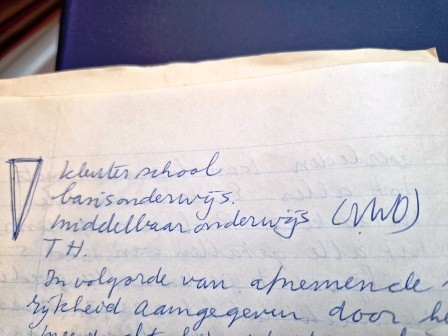 kleuterschool
basisonderwijs.
middelbaar onderwijs (VWO)
T.H.
In volgorde van afnemende
rijkheid aangegeven door